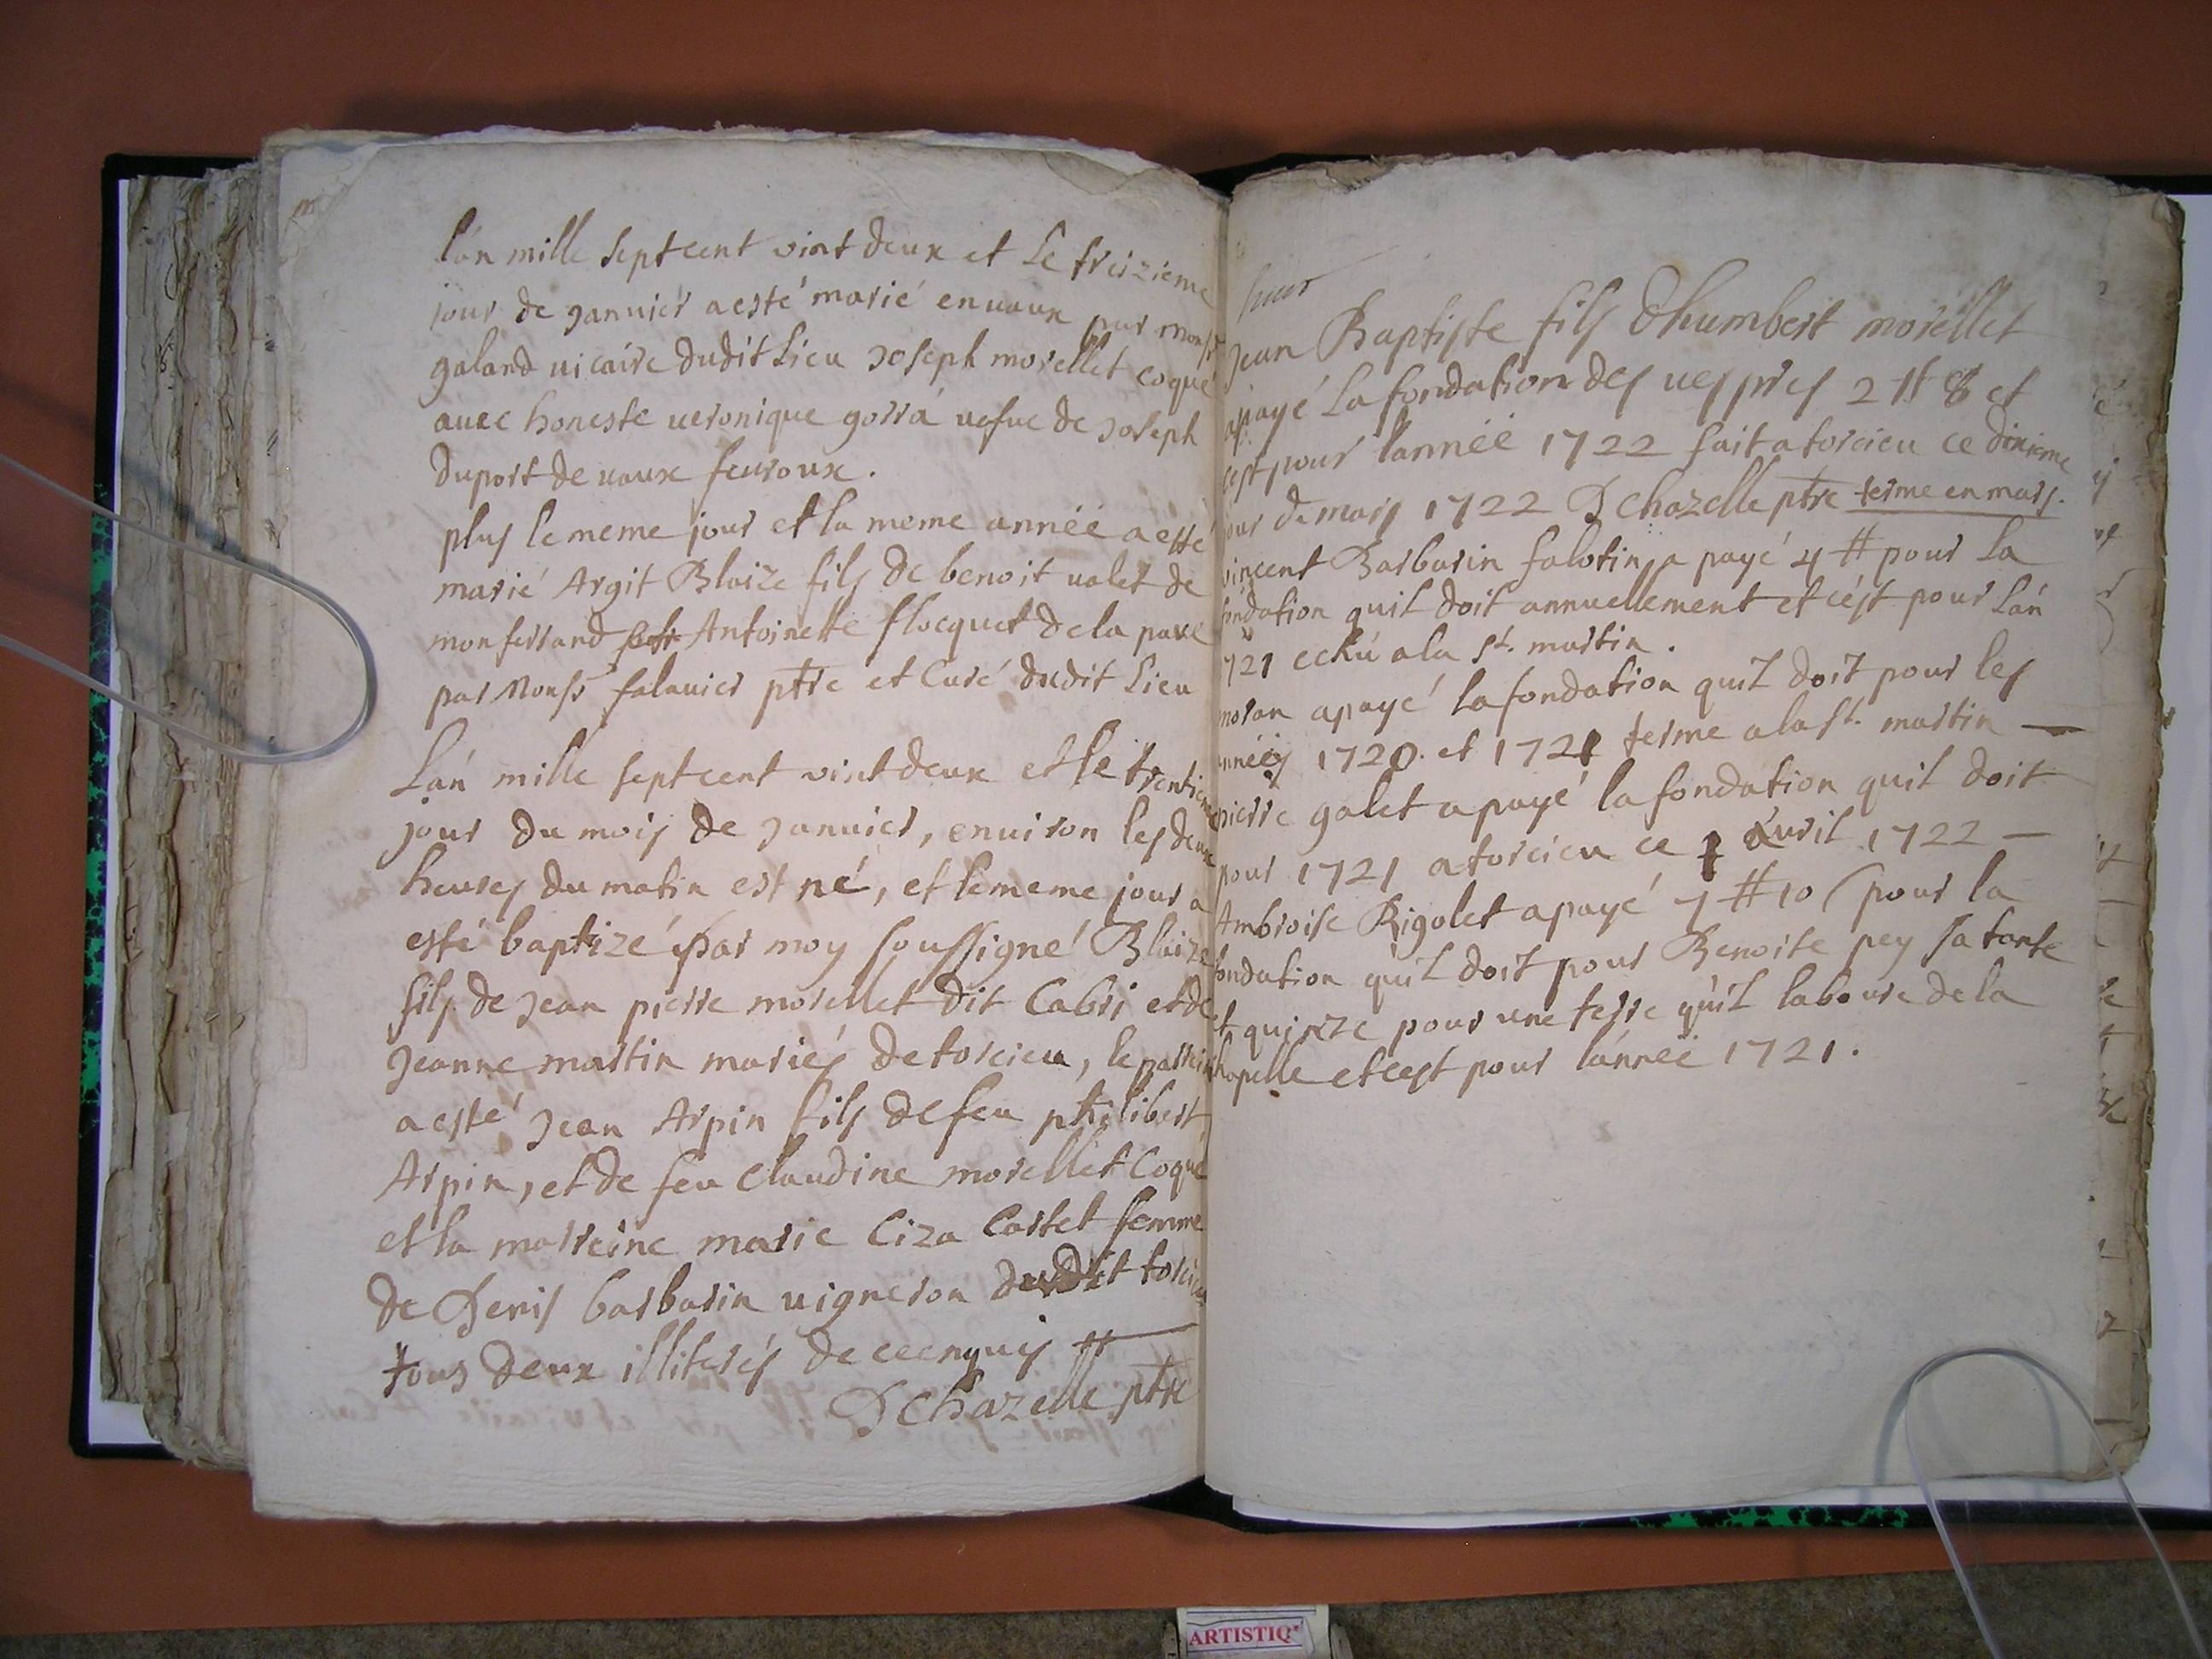 l'an mille sept cent vint deux et le treizieme
jour de janvier a esté marié en vaux par monsr
galand vicaire dudit lieu joseph morellet coque
avec honeste veronique gorra vefue de joseph
duport de vaux fevroux.
plus le meme jour et la meme année a esté
marié Argit Blaize fils de benoit valet de
monferrand Antoinette flocquet de la paxe
par Monsr falavier ptre et Curé dudit Lieu
L'an mille sept cent vint deux et le trentieme
jour du mois de janvier, environ les deux
heures du matin est né, et le meme jour a
esté baptizé par moy soussigné Blaize
fils de jean pierre morellet dit Cabri et de
jeanne martin mariés de torcieu, le parrein
a esté jean Arpin fils de feu philibert
Arpin, et de feu Claudine morellet Coque
et la marreine marie Ciza Cartet femme
de Denis barbarin vigneron dudit torcieu
tous deux illiterés de ce enquis
D chazelle ptre
jean Baptiste fils d'humbert morellet
a payé la fondation des vespres 2 # 8 et
cest pour l'année 1722 fait a torcieu ce dixieme
jour de mars 1722 D chazelle ptre terme en mars.
vincent Barbarin falotin a payé 4 # pour la
fondation quil doit annuellement et c'est pour l'an
1721 echu a la st. martin.
moran a payé la fondation quil doit pour les
années 1720. et 1721 terme a la st. martin —
pierre galet a payé la fondation quil doit
pour 1721 a torcieu ce avril 1722 —
Ambroise Rigolet a payé 1 # 10 s pour la
fondation qu'il doit pour Benoite pey sa tante
et quinze pour une terre qu'il laboure de la
chapelle et cest pour l'année 1721.
ARTISTIQ